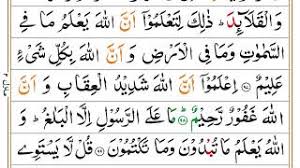 وَالْقَلَآئِدَ ؕ ذٰلِكَ لِتَعْلَمُوْۤا اَنَّ اللّٰهَ يَعْلَمُ مَا فِى
السَّمٰوٰتِ وَمَا فِى الْاَرْضِ وَ اَنَّ اللّٰهَ بِكُلِّ شَىْءٍ
عَلِيْمٌ ۹۷ اِعْلَمُوْۤا اَنَّ اللّٰهَ شَدِيْدُ الْعِقَابِ وَ اَنَّ
اللّٰهَ غَفُوْرٌ رَّحِيْمٌ ؕ ۹۸ مَا عَلَى الرَّسُوْلِ اِلَّا الْبَلٰغُ ؕ وَ
اللّٰهُ يَعْلَمُ مَا تُبْدُوْنَ وَمَا تَكْتُمُوْنَ ۹۹ قُلْ لَّا يَسْتَوِى